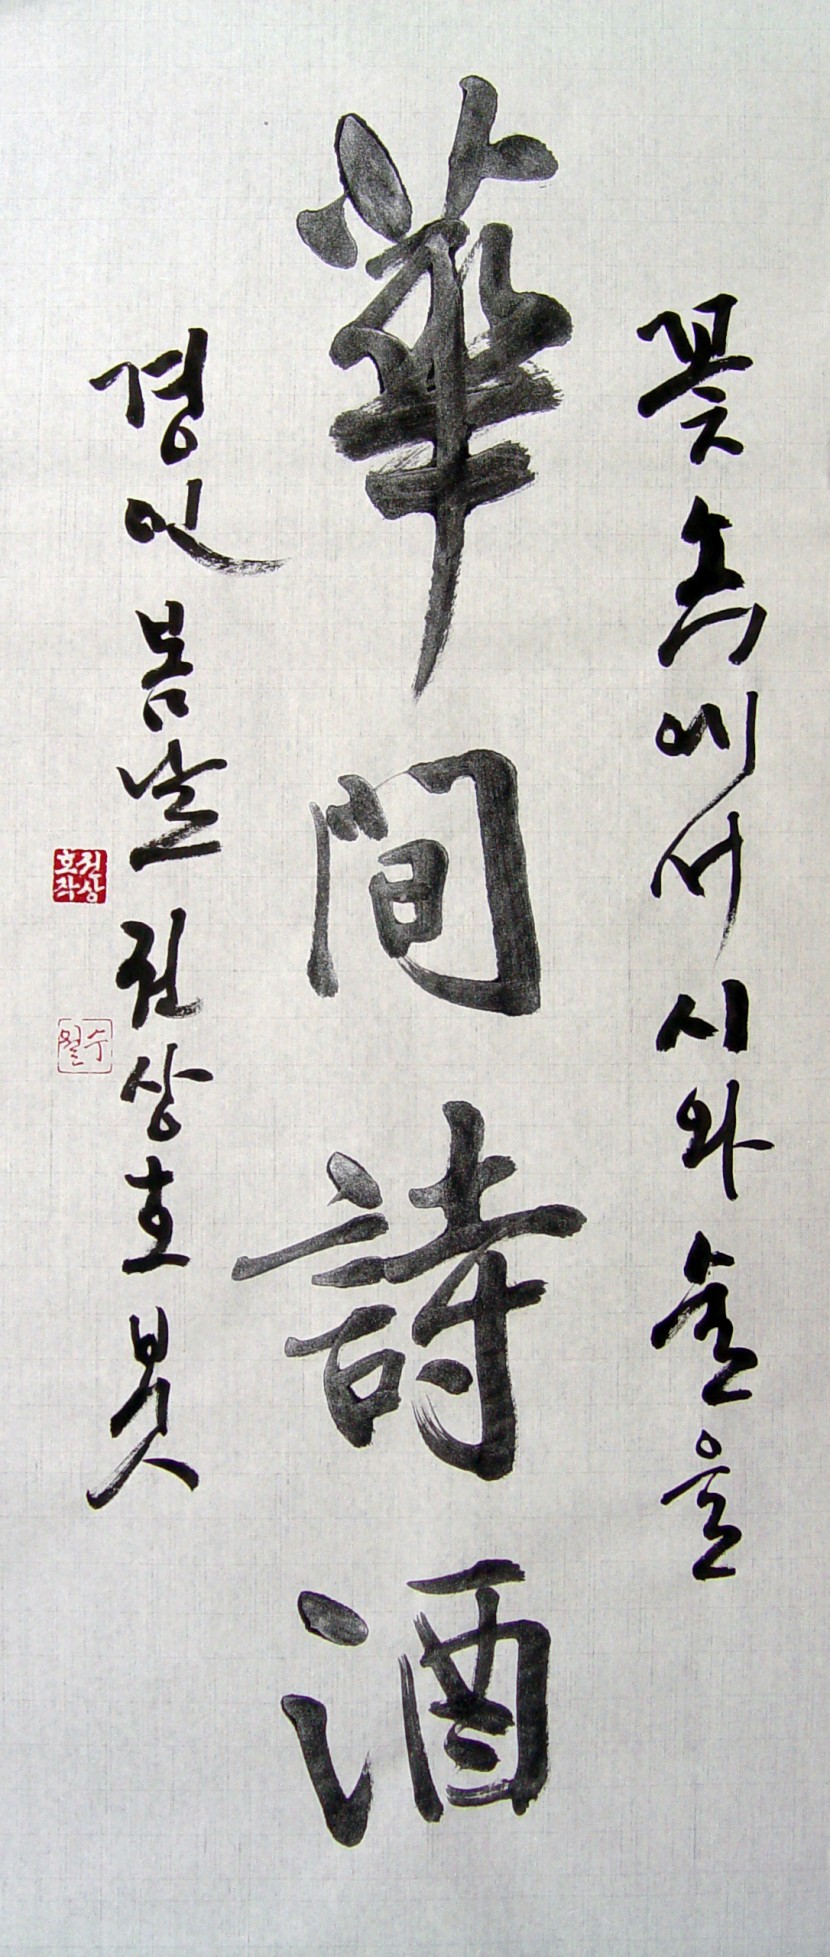 꽃 속에서 시와 술을
華間詩酒
경인 봄날 권상호 붓
권상호작
수월